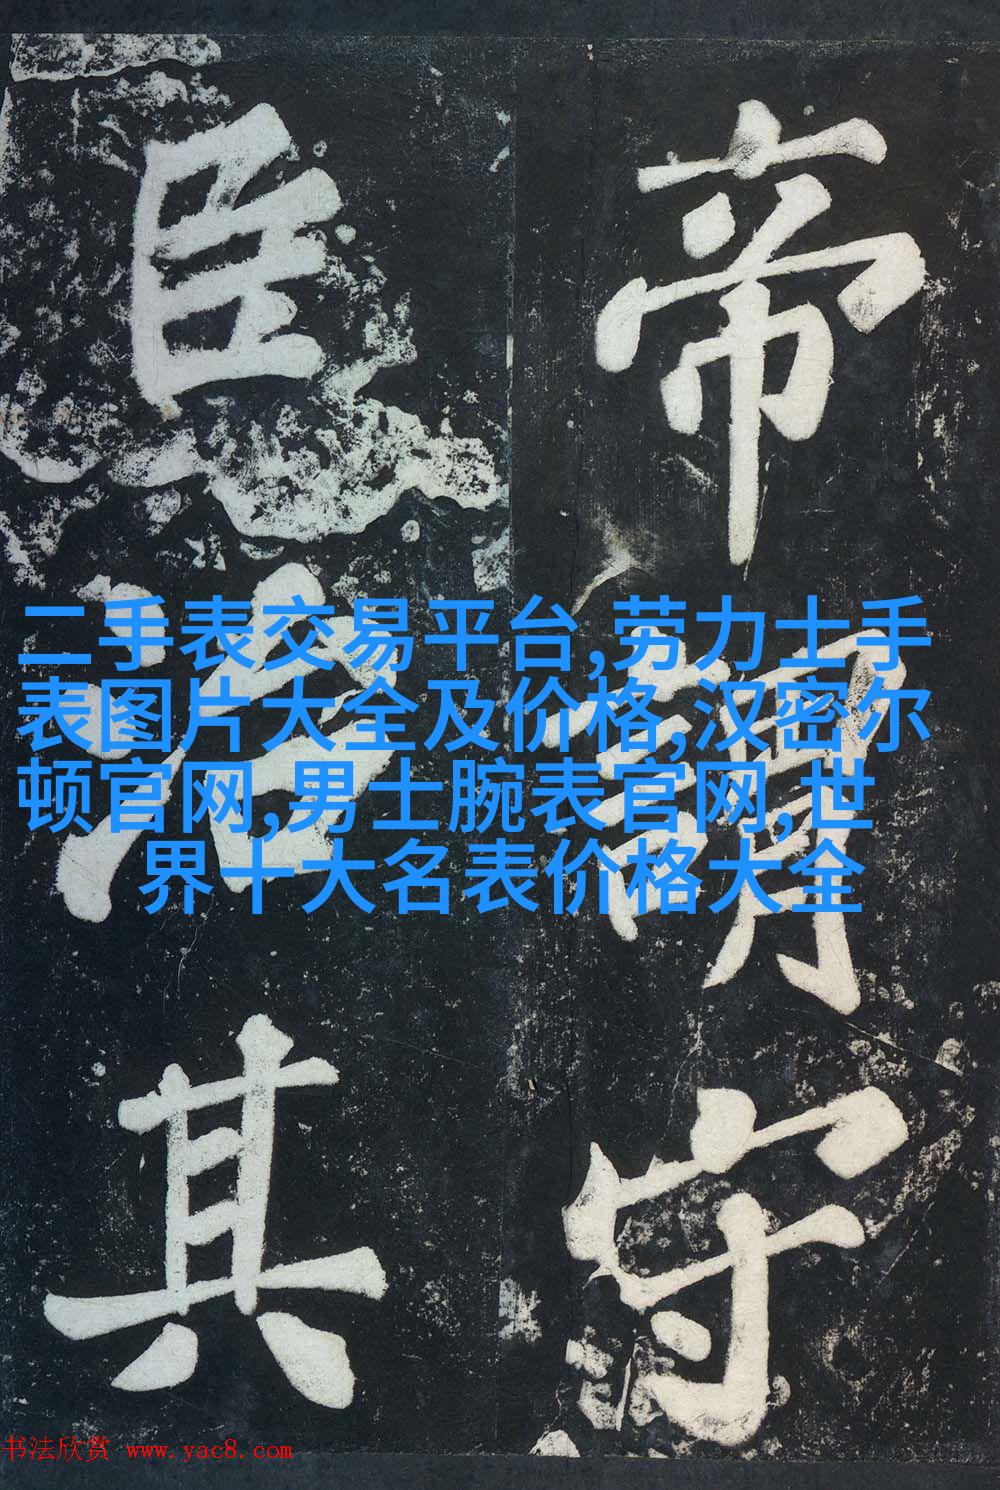 帝謂守
臣治其
二手表交易平台,劳力士手
表图片大全及价格,汉密尔
顿官网,男士腕表官网,世
界十大名表价格大全
书法欣赏 www.yac8.com